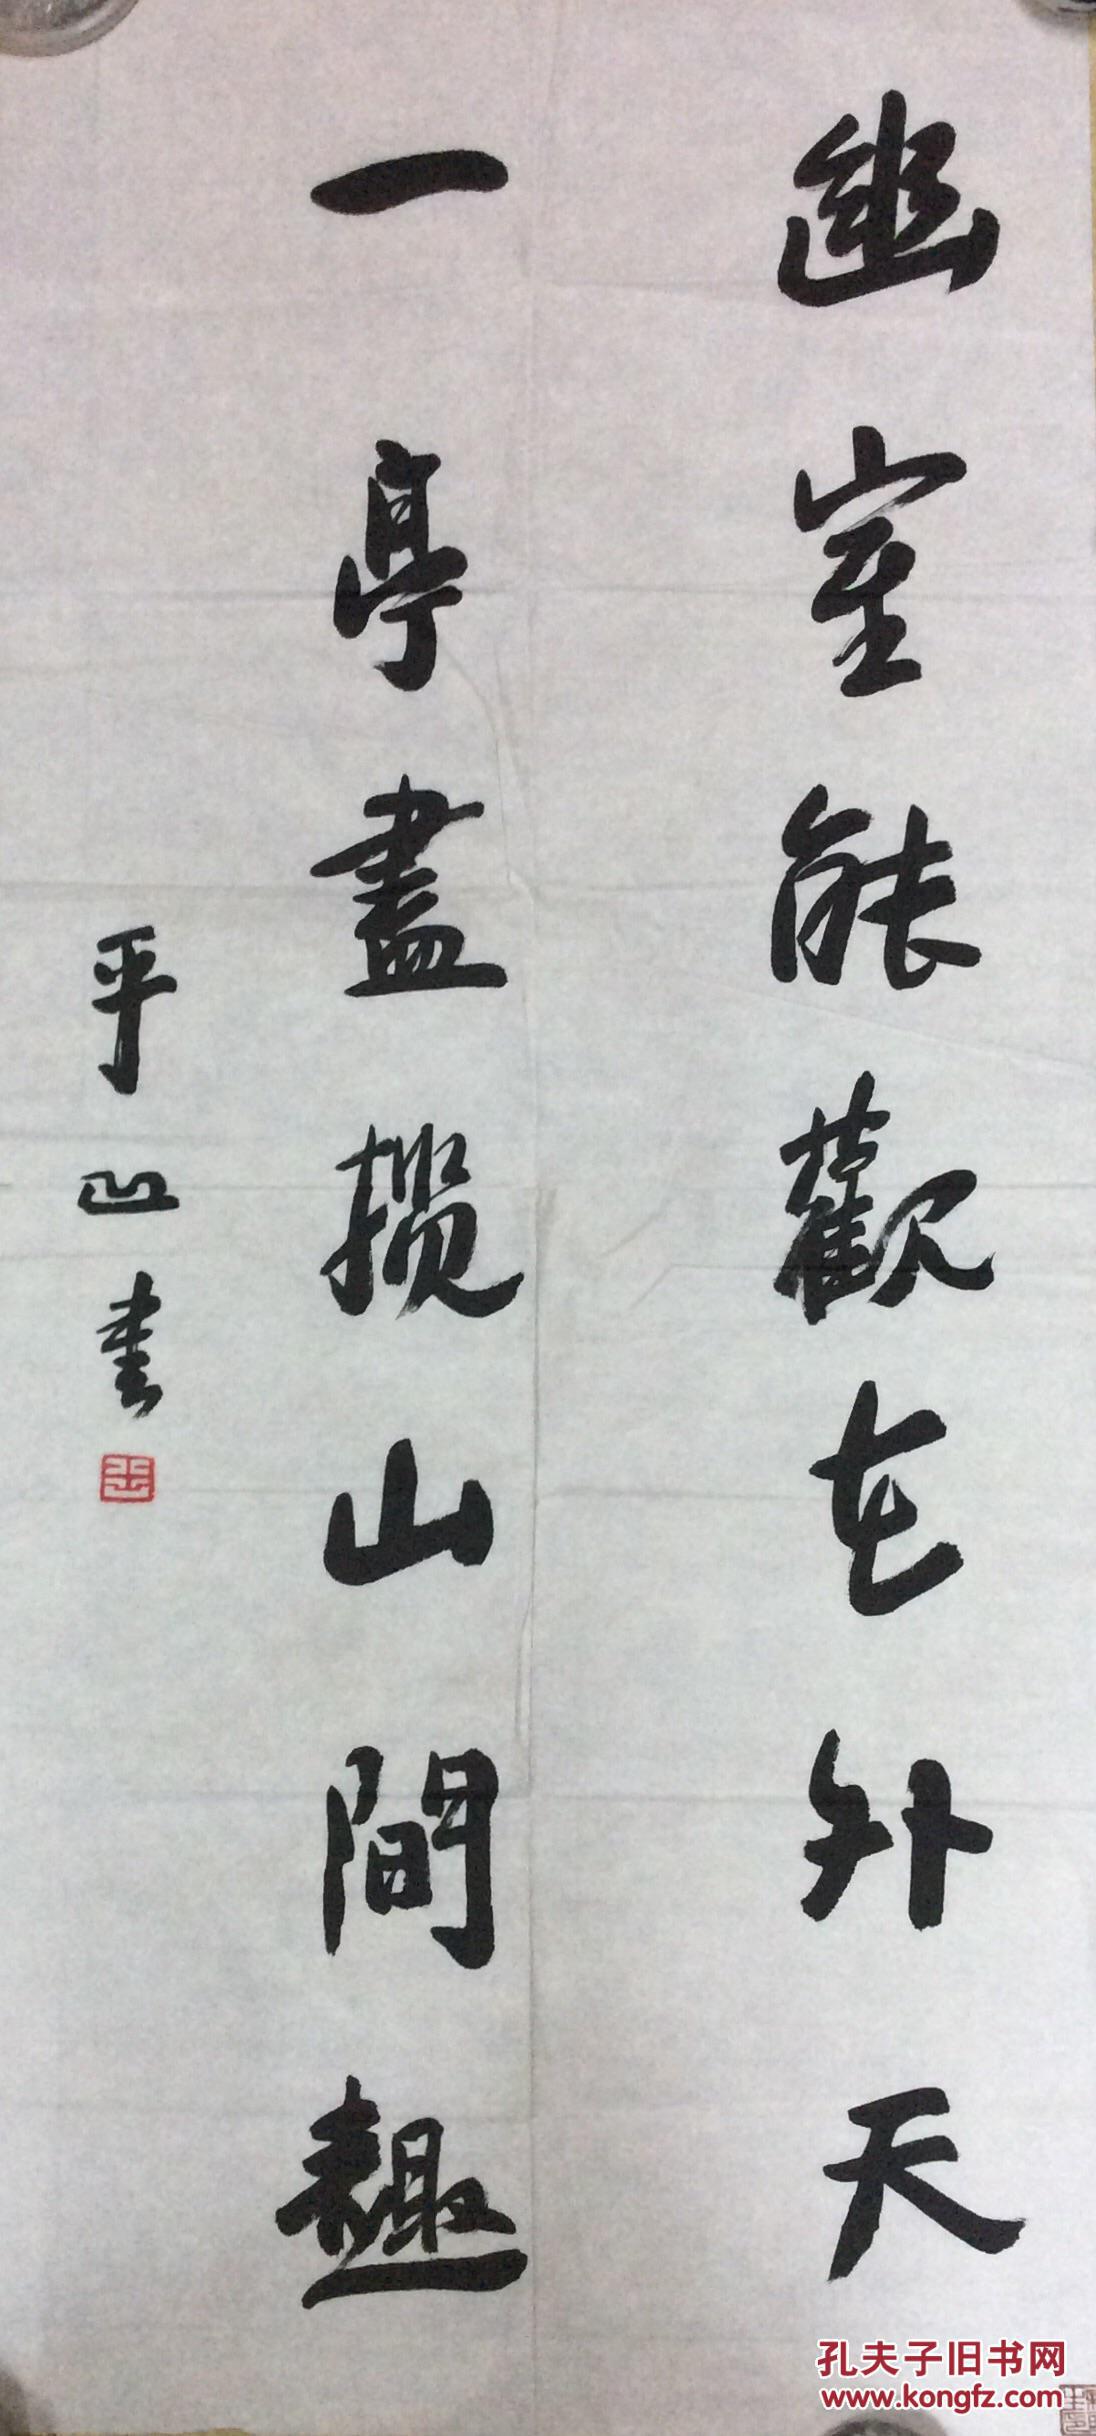 幽室能觀世外天
一亭盡揽山間趣
平凹书
孔夫子旧书网
www.kongfz.com